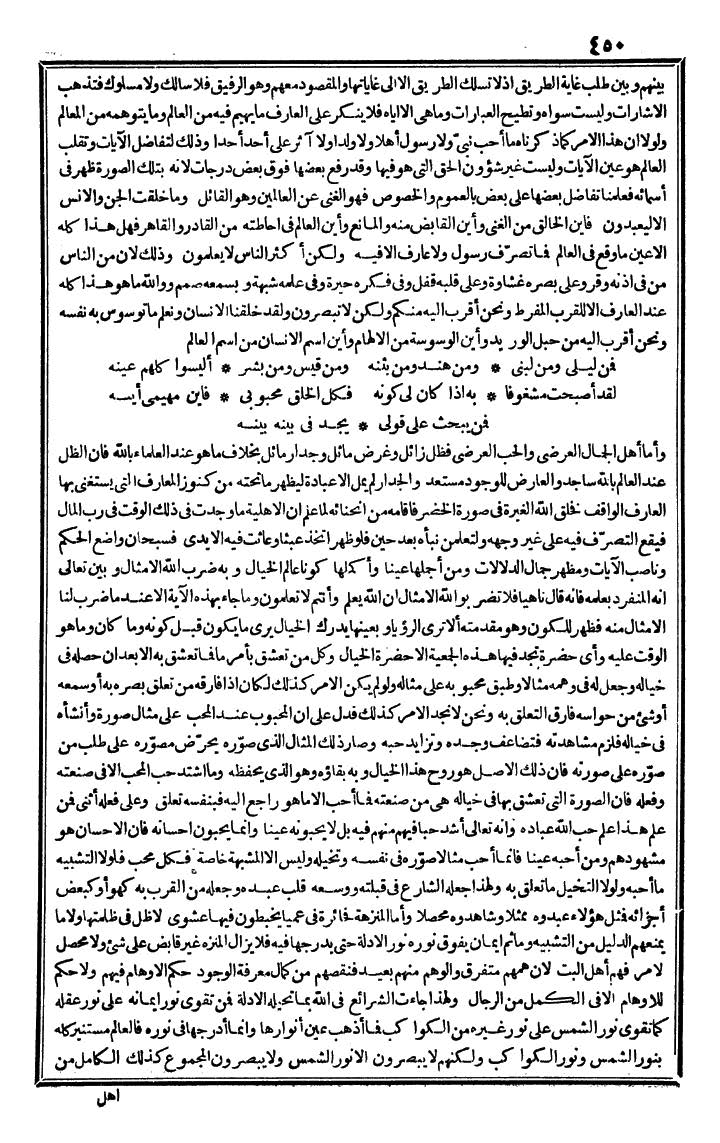 ٤٥٠
بينهم وبين طلب غاية الطريق اذ لا تسلك الطريق الا الى غاياتها والمقصود معهم وهو الرفيق فلا سالك ولا مسلوك فتذهب
الاشارات وليست سواه وتطيح العبارات وما هى الا اياه فلا ينكر على العارف ما يهيم فيه من العالم وما يتوهمه من المعالم
ولولا ان هذا الامر كما ذكرناه ما أحب نبىّ ولا رسول أهلا ولا ولدا ولا آثر على أحد أحدا وذلك لتفاضل الآيات وتقلب
العالم هو عين الآيات وليست غير شؤون الحق التى هو فيها وقد رفع بعضها فوق بعض درجات لانه بتلك الصورة ظهر فى
أسمائه فعلمنا تفاضل بعضها على بعض بالعموم والخصوص فهو الغنى عن العالمين وهو القائل وما خلقت الجن والانس
الا ليعبدون فاين الخالق من الغنى وأين القابض منه والمانع وأين العالم فى احاطته من القادر والقاهر فهل هذا كله
الاعين ما وقع فى العالم فما تصرّف رسول ولا عارف الا فيه ولكن أكثر الناس لا يعلمون وذلك لان من الناس
من فى اذنه وقر وعلى بصره غشاوة وعلى قلبه قفل وفى فكره حيرة وفى علمه شبهة وبسمعه صمم ووالله ما هو هذا كله
عند العارف الا للقرب المفرط ونحن أقرب اليه منكم ولكن لا تبصرون ولقد خلقنا الانسان ونعلم ما توسوس به نفسه
ونحن أقرب اليه من حبل الوريد وأين الوسوسة من الالهام وأين اسم الانسان من اسم العالم
فمن ليلى ومن لبنى * ومن هند ومن بثنه ومن قيس ومن بشر * أليسوا كلهم عينه
لقد أصبحت مشغوفا * به اذا كان لى كونه فكل الخلق محبوبى * فاين مهيمى أينه
فمن يبحث على قولى * يجد فى بينه بينه
وأما أهل الجمال العرضى والحب العرضى فظل زائل وغرض مائل وجدار مائل بخلاف ما هو عند العلماء بالله فان الظل
عند العالم بالله ساجد والعارض للوجود مستعد والجدار لم يمل الا عبادة ليظهر ما تحته من كنوز المعارف التى يستغنى بها
العارف الواقف فخلق الله الغيرة فى صورة الخضر فاقامه من انحنائه لما علم ان الاهلية ما وجدت فى ذلك الوقت فى رب المال
فيقع التصرّف فيه على غير وجهه ولتعلمن نبأه بعد حين فلو ظهر اتخذ عبثا وعاثت فيه الايدى فسبحان واضع الحكم
وناصب الآيات ومظهر جمال الدلالات ومن أجلها عينا وأكملها كونا عالم الخيال وبه ضرب الله الامثال وبين تعالى
انه المنفرد بعلمه فانه قال ناهيا فلا تضربوا لله الامثال ان الله يعلم وأنتم لا تعلمون وما جاء بهذه الآية الا عند ما ضرب لنا
الامثال منه فظهر للكون وهو مقدمته ألا ترى الرؤيا وبعينها يدرك الخيال يرى ما يكون قبل كونه وما كان وما هو
الوقت عليه وأى حضرة تجد فيها هذه الجمعية الا حضرة الخيال وكل من تعشق بأمر ما فما تعشق به الا بعد ان حصله فى
خياله وجعل له فى وهمه مثالا وطبق محبوبه على مثاله ولو لم يكن الامر كذلك لكان اذا فارقه من تعلق بصره به أو سمعه
أو شئ من حواسه فارق التعلق به ونحن لا نجد الامر كذلك فدل على ان المحبوب عند المحب على مثال صورة وأنشأه
فى خياله فلزم مشاهدته فتضاعف وجده وتزايد حبه وصار ذلك المثال الذى صوّره يحرّض مصوّره على طلب من
صوّره على صورته فان ذلك الاصل هو روح هذا الخيال وبه بقاؤه وهو الذى يحفظه وما اشتد حب المحب الا فى صنعته
وفعله فان الصورة التى تعشق بها فى خياله هى من صنعته فما أحب الا ما هو راجع اليه فبنفسه تعلق وعلى فعله أثنى فمن
علم هذا علم حب الله عباده وانه تعالى أشد حبا فيهم منهم فيه بل لا يحبونه عينا وانما يحبون احسانه فان الاحسان هو
مشهودهم ومن أحبه عينا فانما أحب مثالا صوّره فى نفسه وتخيله وليس الا المشبهة خاصة فكل محب فلولا التشبيه
ما أحبه ولولا التخيل ما تعلق به ولهذا جعله الشارع فى قبلته ووسعه قلب عبده وجعله من القرب به كهو أو كبعض
أجزائه فمثل هؤلاء عبدوه ممثلا وشاهدوه محصلا وأما المنزهة فائرة فى عمياء يخبطون فيها عشوى لا ظل فى ظلمتها ولا ما
يمنعهم الدليل من التشبيه وما ثم ايمان يفوق نوره نور الادلة حتى يدرجها فيه فلا يزال المنزه غير قابض على شئ ولا محصل
لامر فهم أهل البت لان همهم متفرق والوهم منهم بعيد فنقصهم من كمال معرفة الوجود حكم الاوهام فيهم ولا حكم
للاوهام الا فى الكمل من الرجال ولهذا جاءت الشرائع فى الله بما تحيله الادلة فمن تقوى نور ايمانه على نور عقله
كما تقوى نور الشمس على نور غيره من الكواكب فما أذهب عين أنوارها وانما أدرجها فى نوره فالعالم مستنير كله
بنور الشمس ونور الكواكب ولكنهم لا يبصرون الا نور الشمس ولا يبصرون المجموع كذلك الكامل من
اهل